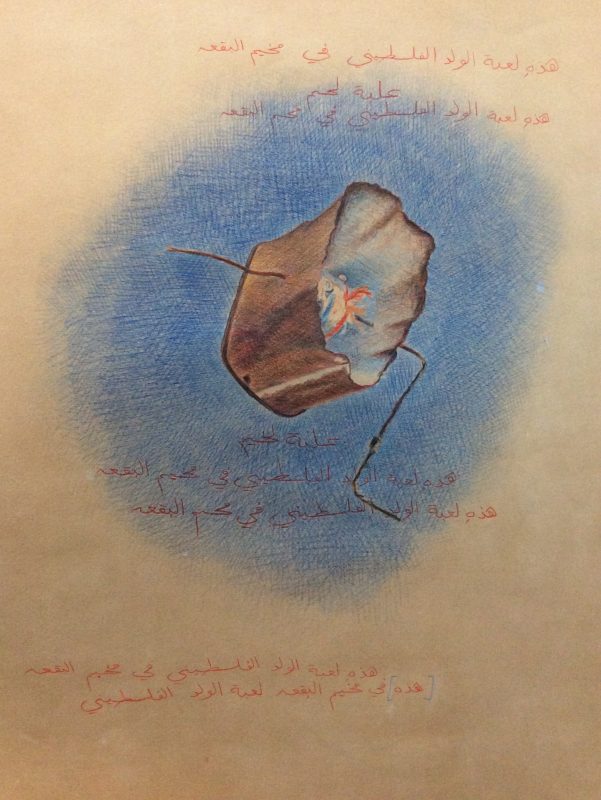 هذه لعبة الولد الفلسطيني في مخيم البقعه
علبة لحيم
هذه لعبة الولد الفلسطيني في مخيم البقعه
علبة لحيم
هذه لعبة الولد الفلسطيني في مخيم البقعه
هذه لعبة الولد الفلسطيني في مخيم البقعه
هذه لعبة الولد الفلسطيني في مخيم البقعه
[هذه] في مخيم البقعه لعبة الولد الفلسطيني